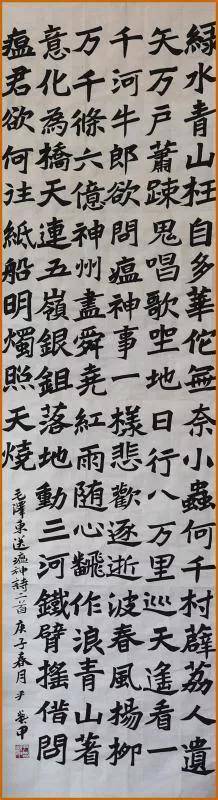 綠水青山枉自多華佗無奈小蟲何千村薜荔人遺
矢万戶蕭踈鬼唱歌坐地日行八万里巡天遙看一
千河牛郎欲問瘟神事一樣悲歡逐逝波春風楊柳
万千條六億神州盡舜堯紅雨随心飜作浪青山著
意化為橋天連五嶺銀鉏落地動三河鐵臂搖借問
瘟君欲何往紙船明燭照天燒
毛澤東送瘟神詩二首庚子春月尹申